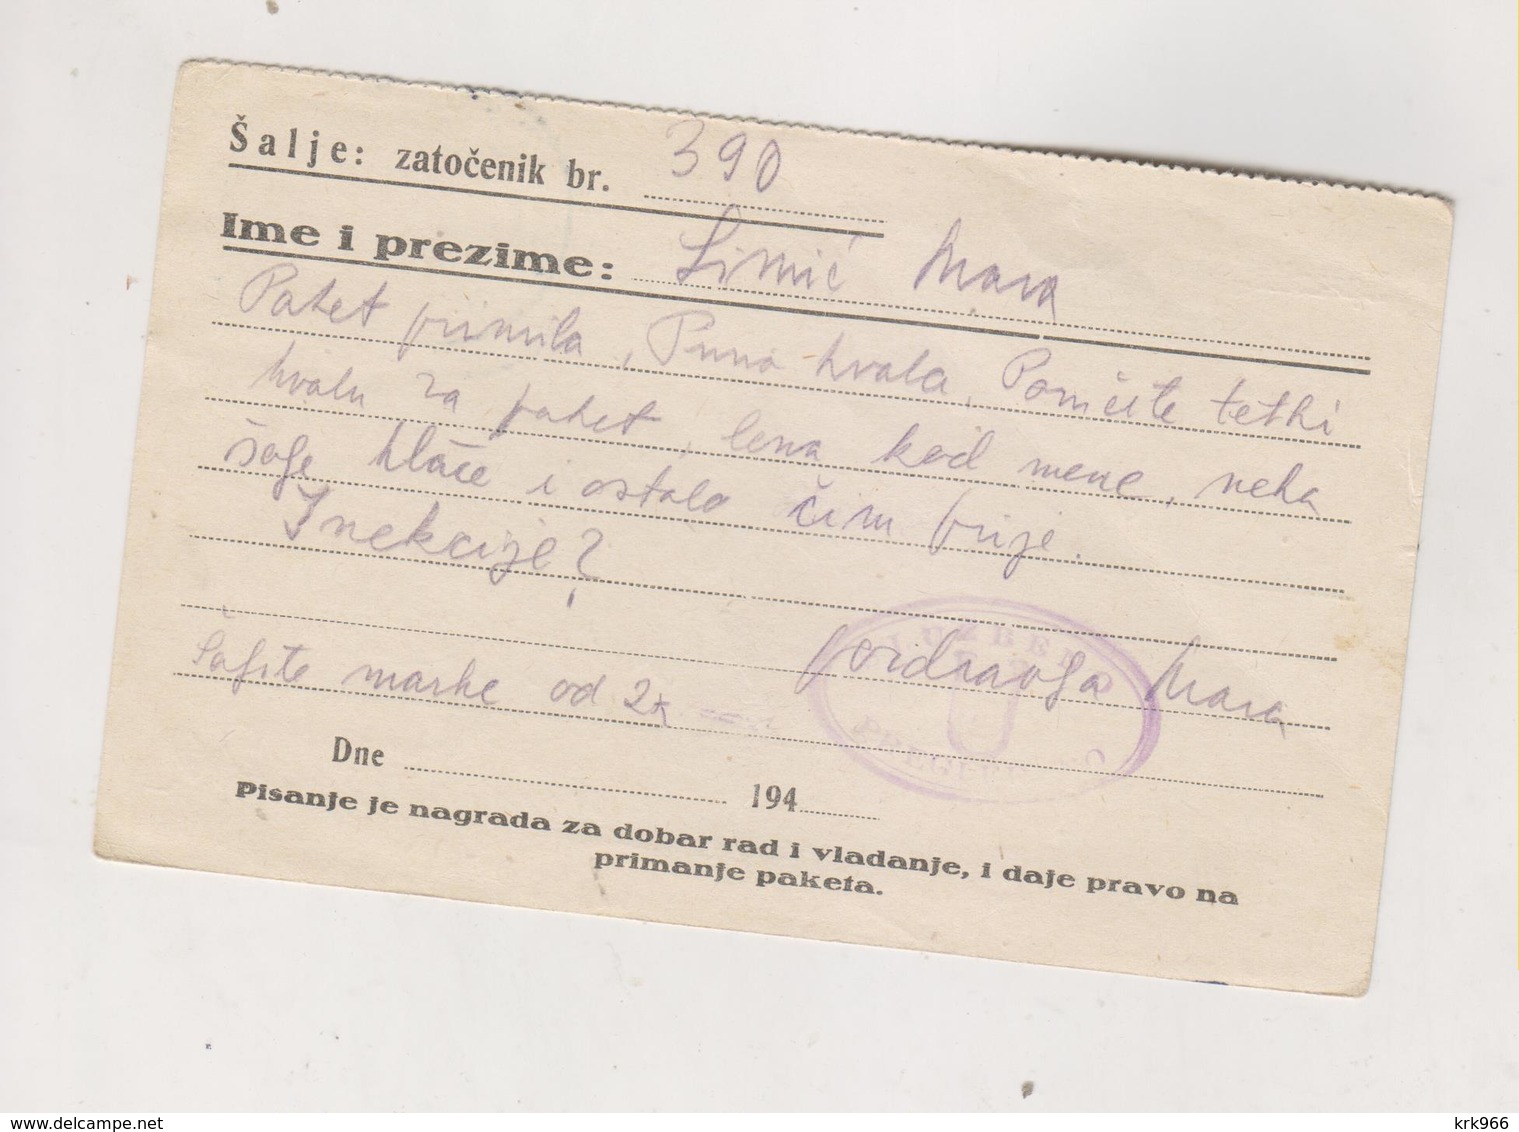 Šalje: zatočenik br. 390
Ime i prezime: Simić Mara
Paket primila, Puno hvala. Poručite tetki
hvalu za paket, lena kod mene, neka
šalje hlače i ostalo čim prije.
Inekcije?
pozdravlja Mara
Šaljite marke od 2k
SLUŽBENO
PREGLEDANO
Dne 194
Pisanje je nagrada za dobar rad i vladanje, i daje pravo na
primanje paketa.
krk966
delcampe.net